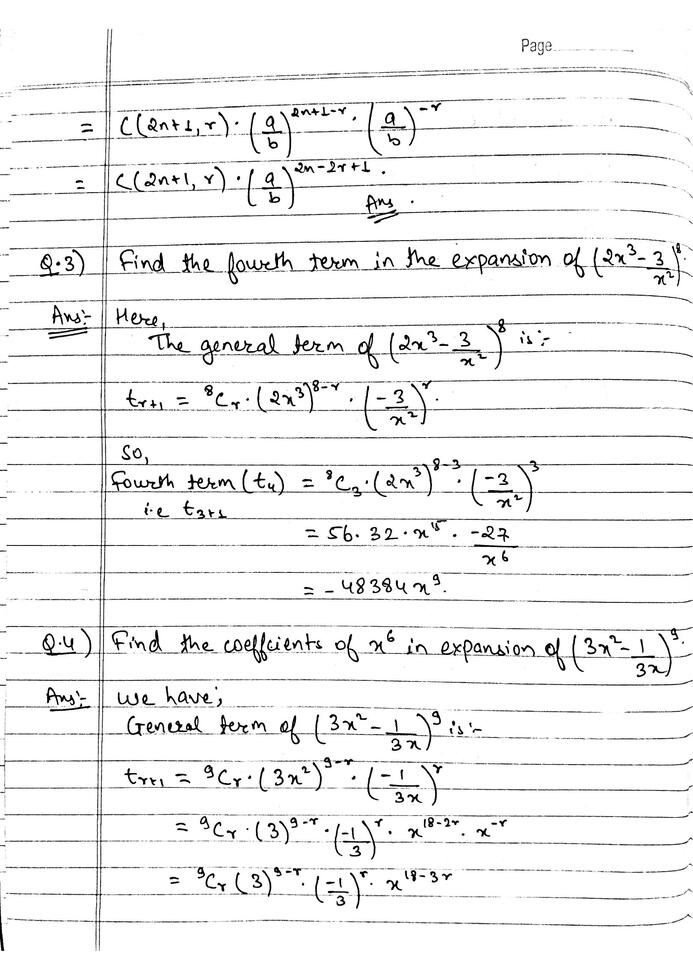 Page
= C(2n+1, r) · (a/b)^(2n+1-r) · (a/b)^(-r)
= C(2n+1, r) · (a/b)^(2n-2r+1) ·
Ans ·
Q.3) Find the fourth term in the expansion of (2x³ - 3/x²)⁸.
Ans:- Here,
The general term of (2x³ - 3/x²)⁸ is :-
t_(r+1) = ⁸C_r · (2x³)^(8-r) · (-3/x²)^r.
So,
fourth term (t₄) = ⁸C₃ · (2x³)^(8-3) · (-3/x²)³
i.e t_(3+1)
= 56 · 32 · x¹⁵ · -27/x⁶
= - 48384 x⁹.
Q.4) Find the coeffcients of x⁶ in expansion of (3x² - 1/3x)⁹.
Ans:- we have;
General term of (3x² - 1/3x)⁹ is :-
t_(r+1) = ⁹C_r · (3x²)^(9-r) · (-1/3x)^r
= ⁹C_r · (3)^(9-r) · (-1/3)^r · x^(18-2r) · x^(-r)
= ⁹C_r (3)^(9-r) · (-1/3)^r · x^(18-3r)